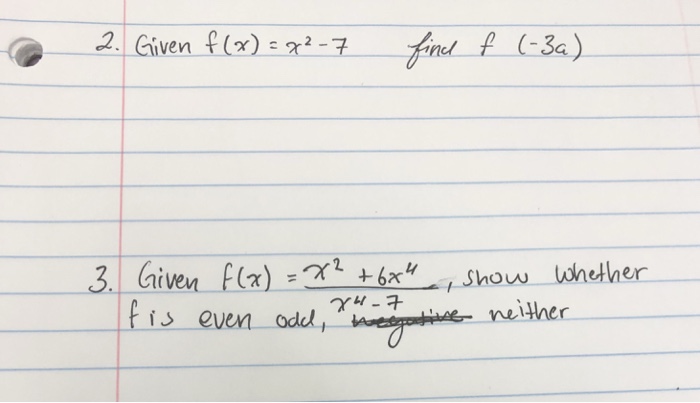 2. Given f(x) = x² - 7 find f (-3a)
3. Given f(x) = x² + 6x⁴, show whether
x⁴ - 7
f is even odd, negative neither